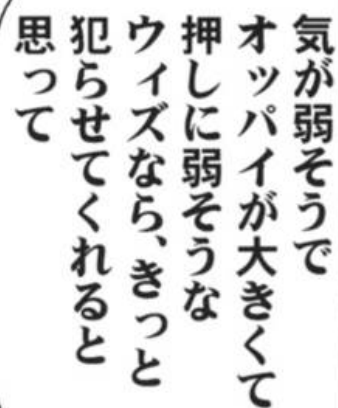 気が弱そうで
オッパイが大きくて
押しに弱そうな
ウィズなら、きっと
犯らせてくれると
思って